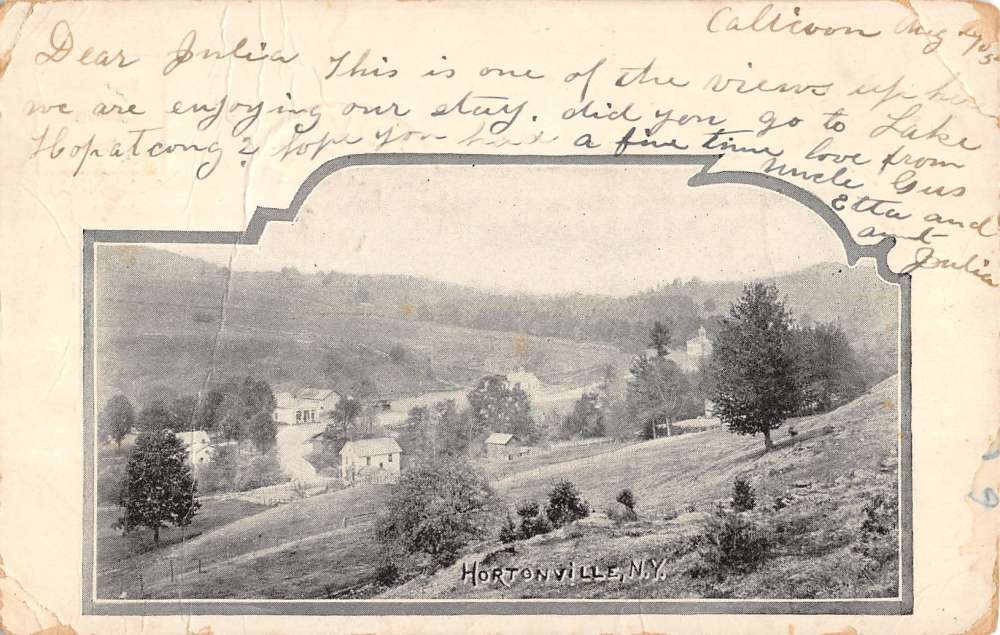 Callicoon Aug
Dear Julia This is one of the views up here
we are enjoying our stay. did you go to Lake
Hopatcong? hope you had a fine time love from
Uncle Gus
Etta and
aunt
Julia
HORTONVILLE, N.Y.